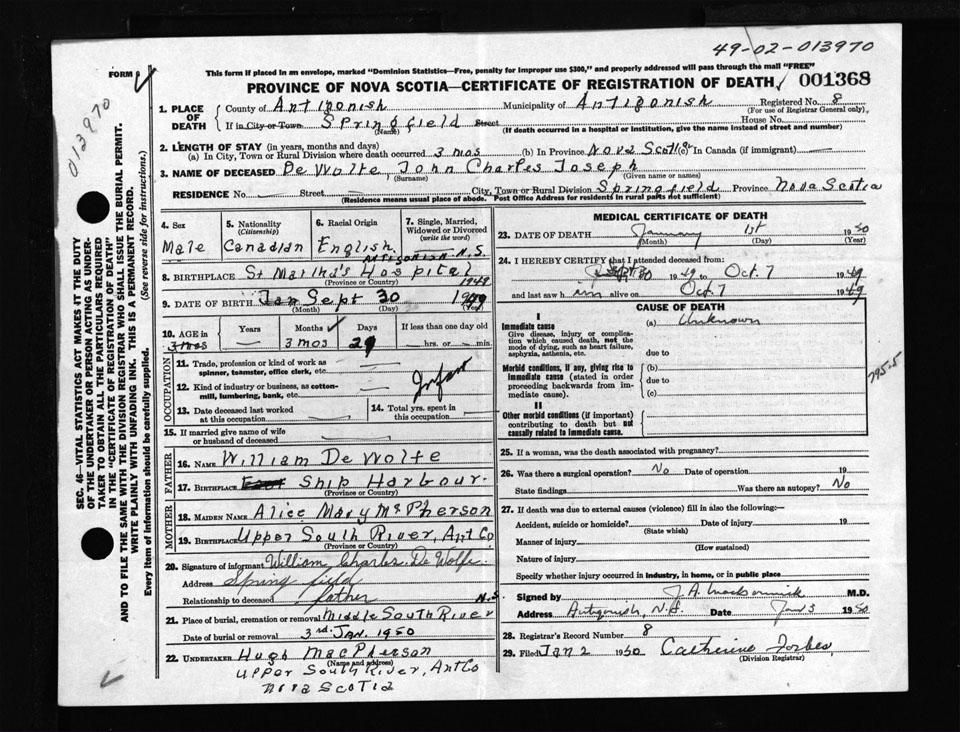 49-02-013970
FORM
This form if placed in an envelope, marked "Dominion Statistics—Free, penalty for improper use $300," and properly addressed will pass through the mail "FREE"
PROVINCE OF NOVA SCOTIA—CERTIFICATE OF REGISTRATION OF DEATH 001368
013970
SEC. 46—VITAL STATISTICS ACT MAKES IT THE DUTY
OF THE UNDERTAKER OR PERSON ACTING AS UNDER-
TAKER TO OBTAIN ALL THE PARTICULARS REQUIRED
IN THE "CERTIFICATE OF REGISTRATION OF DEATH"
AND TO FILE THE SAME WITH THE DIVISION REGISTRAR WHO SHALL ISSUE THE BURIAL PERMIT.
WRITE PLAINLY WITH UNFADING INK. THIS IS A PERMANENT RECORD.
Every item of information should be carefully supplied. (See reverse side for instructions.)
1. PLACE OF DEATH
County of Antigonish Municipality of Antigonish Registered No. 8
(For use of Registrar General only)
If in City or Town Springfield Street House No.
(Name) (If death occurred in a hospital or institution, give the name instead of street and number)
2. LENGTH OF STAY (in years, months and days)
(a) In City, Town or Rural Division where death occurred 3 mos (b) In Province Nova Scotia (c) In Canada (if immigrant)
3. NAME OF DECEASED De Wolfe John Charles Joseph
(Surname) (Given name or names)
RESIDENCE No. Street City, Town or Rural Division Springfield Province Nova Scotia
(Residence means usual place of abode. Post Office Address for residents in rural parts not sufficient)
4. Sex
Male
5. Nationality
(Citizenship)
Canadian
6. Racial Origin
English
7. Single, Married,
Widowed or Divorced
(write the word)
Antigonish N.S.
8. BIRTHPLACE St Martha's Hospital
(Province or Country) 1949
9. DATE OF BIRTH Jan Sept 30 1949
(Month) (Day) (Year)
10. AGE in
3 mos
Years
Months
3 mos
Days
29
If less than one day old
hrs. or min.
OCCUPATION
11. Trade, profession or kind of work as
spinner, teamster, office clerk, etc.
12. Kind of industry or business, as cotton-
mill, lumbering, bank, etc.
Infant
13. Date deceased last worked
at this occupation
14. Total yrs. spent in
this occupation
15. If married give name of wife
or husband of deceased
FATHER
16. NAME William De Wolfe
17. BIRTHPLACE Ship Harbour.
(Province or Country)
MOTHER
18. MAIDEN NAME Alice Mary McPherson
19. BIRTHPLACE Upper South River, Ant Co
(Province or Country)
20. Signature of informant William Charles De Wolfe
Address Springfield
Relationship to deceased father N.S
21. Place of burial, cremation or removal Middle South River
Date of burial or removal 3rd. JAN. 1950
22. UNDERTAKER Hugh MacPherson
(Name and address)
Upper South River, Ant Co
Nova Scotia
MEDICAL CERTIFICATE OF DEATH
23. DATE OF DEATH January 1st 1950
(Month) (Day) (Year)
24. I HEREBY CERTIFY that I attended deceased from:
Sept 30 1949 to Oct. 7 1949
and last saw h im alive on Oct. 7 1949
CAUSE OF DEATH
I
Immediate cause
Give disease, injury or complica-
tion which caused death, not the
mode of dying, such as heart failure,
asphyxia, asthenia, etc.
(a) Unknown
due to
Morbid conditions, if any, giving rise to
immediate cause (stated in order
proceeding backwards from im-
mediate cause).
(b)
due to
(c)
795-5
II
Other morbid conditions (if important)
contributing to death but not
causally related to immediate cause.
25. If a woman, was the death associated with pregnancy?
26. Was there a surgical operation? No Date of operation 19
State findings Was there an autopsy? No
27. If death was due to external causes (violence) fill in also the following:—
Accident, suicide or homicide? Date of injury 19
(State which)
Manner of injury
(How sustained)
Nature of injury
Specify whether injury occurred in industry, in home, or in public place
Signed by J. A. MacCormick M.D.
Address Antigonish, N.S. Date Jan 3 1950
28. Registrar's Record Number 8
29. Filed Jan 2 1950 Catherine Forbes
(Division Registrar)